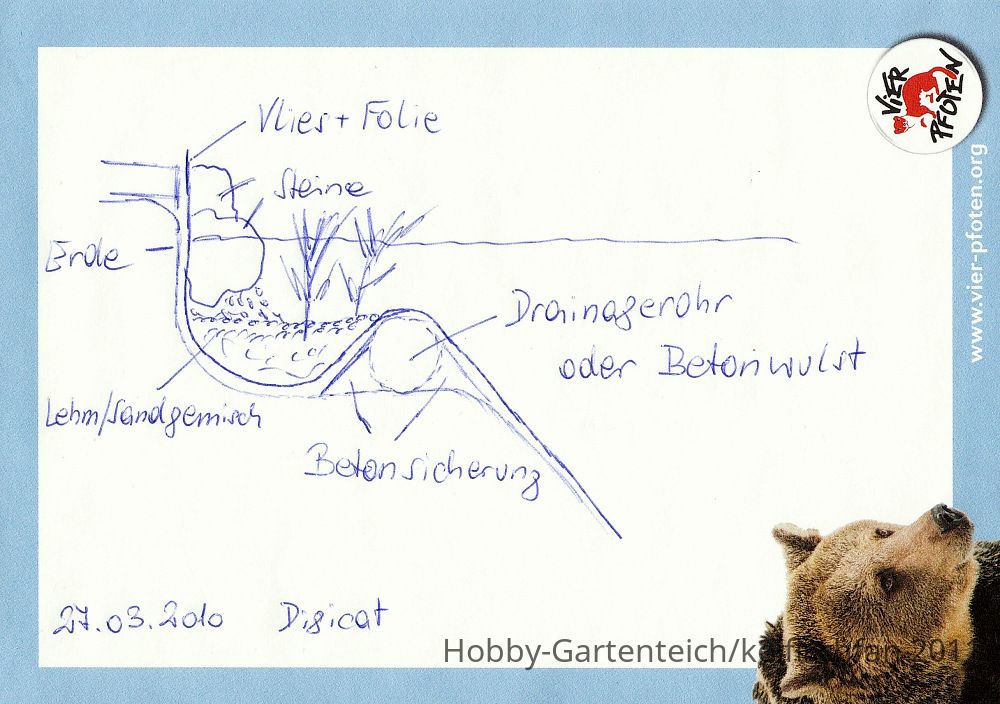 VIER
PFOTEN
www.vier-pfoten.org
Vlies + Folie
Steine
Erde
Drainagerohr
oder Betonwulst
Lehm/Sandgemisch
Betonsicherung
27.03.2010 Digicat
Hobby-Gartenteich/